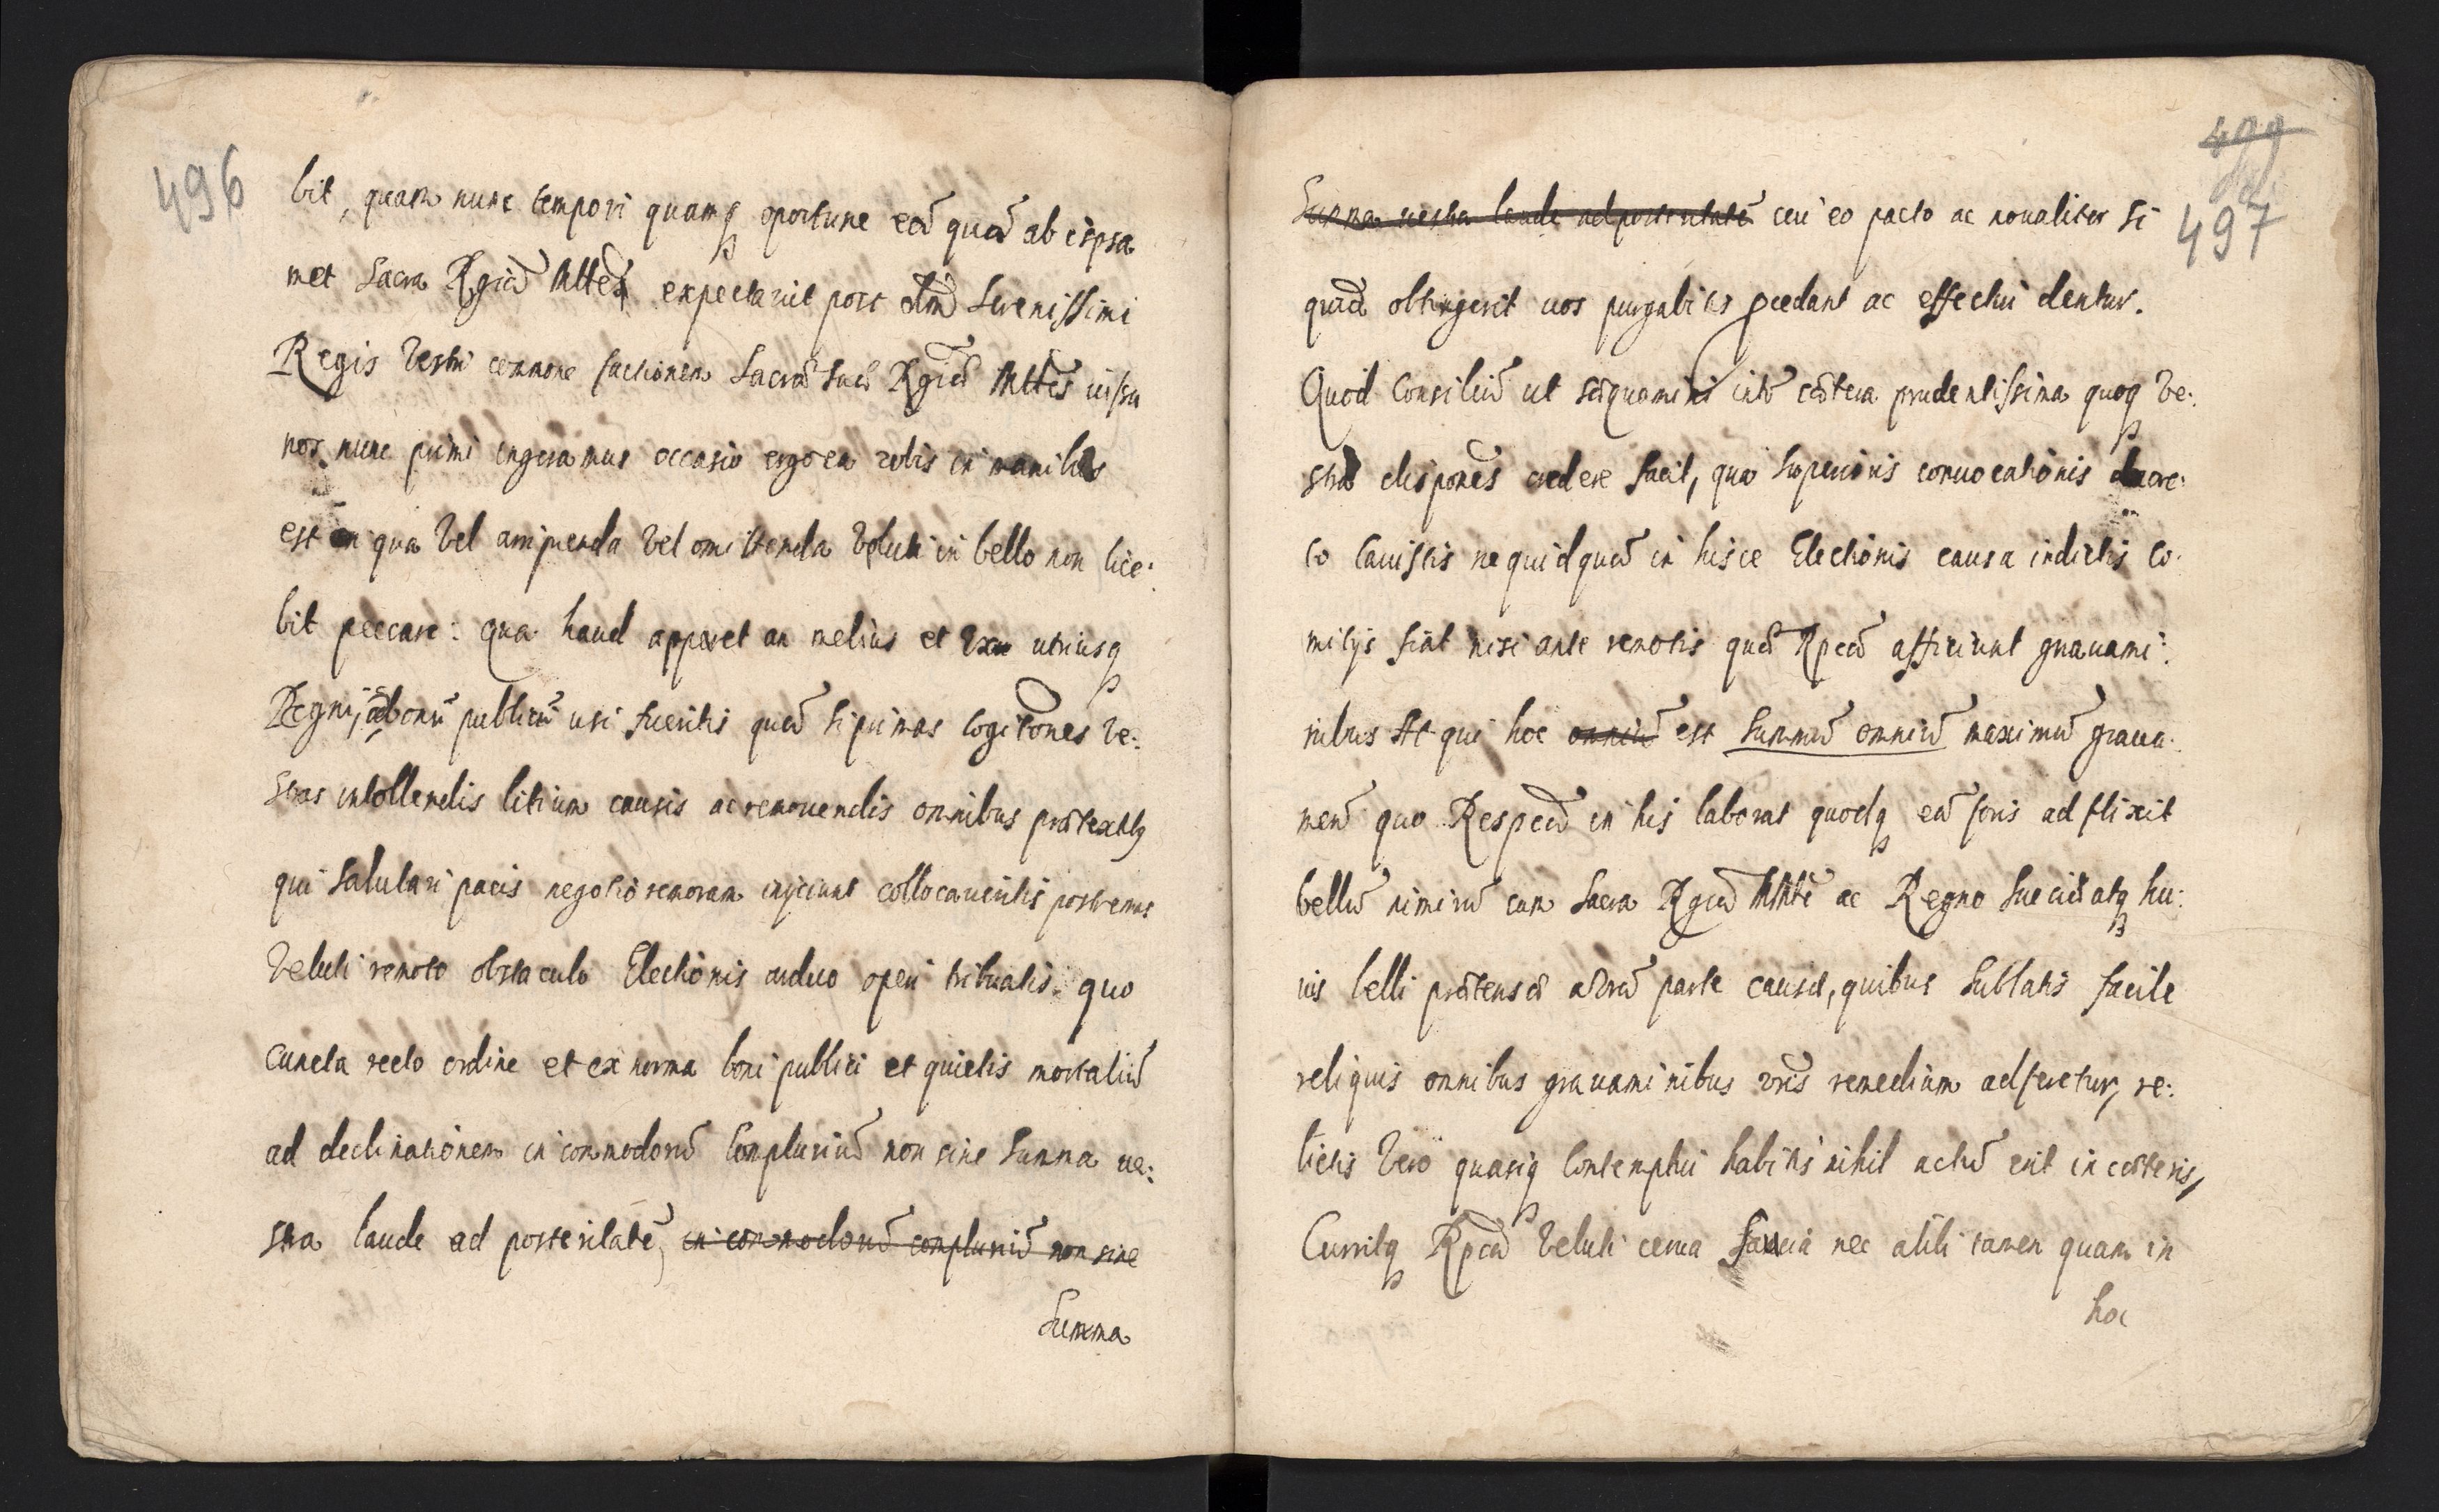 496
bit, quam nunc tempori quamq oportune eā quā ab eipsa
met Sacra Rgia Mttes expectavit post obitū Serenissimi
Regis Vestri commone factionem Sacrae Suae Rgiae Mttis iussu
nos nunc primi ingeramus occasio ergo ea vobis in manibus
est in qua Vel arripienda Vel omittenda Veluti in bello non lice:
bit peccare: qua haud apparet an melius et utriusq
Regni, ad bonū publicū usi fueritis quā si primas Cogitones Ve:
stras in tollendis litium causis ac removendis omnibus praetextibq
qui Salutari pacis negotio remoram injiciunt collocaveritis postremas
Veluti remoto obstaculo Electionis arduo operi tribuatis. quo
cuncta recto ordine et ex norma boni publici et quietis mortaliū
ad declinationem in commodorū Compluriū non sine Summa ve:
stra laude ad posteritatē, in commodorū compluriū non sine
Summa
499
497
Summa vestra laude ad posteritatē ceu eo pacto ac novaliter si
quid obtingerit vos purgabitis pcedant ac effectui dentur.
Quod Consiliū ut sequamini intr caetera prudentissima quoq Ve:
stra dispones credere facit, qua Superioris convocationis decre:
to Cavistis ne quidquā in hisce Electionis causa indictis Co:
mitijs fiat nisi ante remotis quae Rpcā afficiunt gravami:
nibus At qui hoc omniū est Summū omniū maximū grava:
men quo Respca in his laborat quodq eā foris adflixit
bellū nimirū cum Sacra Rgia Mtte ac Regno Sueciae atq hu:
ius belli praetensae parte causae, quibus Sublatis facile
reliquis omnibus gravaminibus vris remedium adferetur, re:
lictis Vero quasiq Contemptui habitis nihil actū erit in caeteris,
Curritq Rpca Veluti cerva Saucia nec alibi tamen quam in
hoc